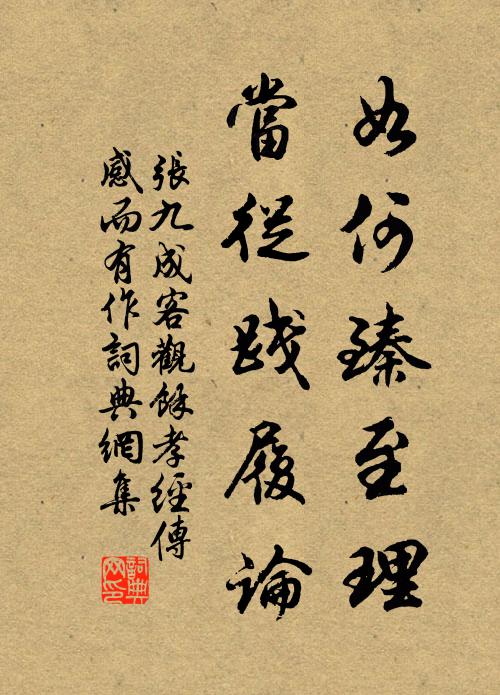 如何臻至理
當從踐履論
張九成客觀餘孝經傳
感而有作詞典網集
詞典
网印